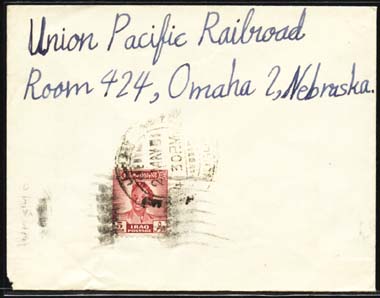 Union Pacific Railroad
Room 424, Omaha 2, Nebraska.
30PM
IRAQ
POSTAGE